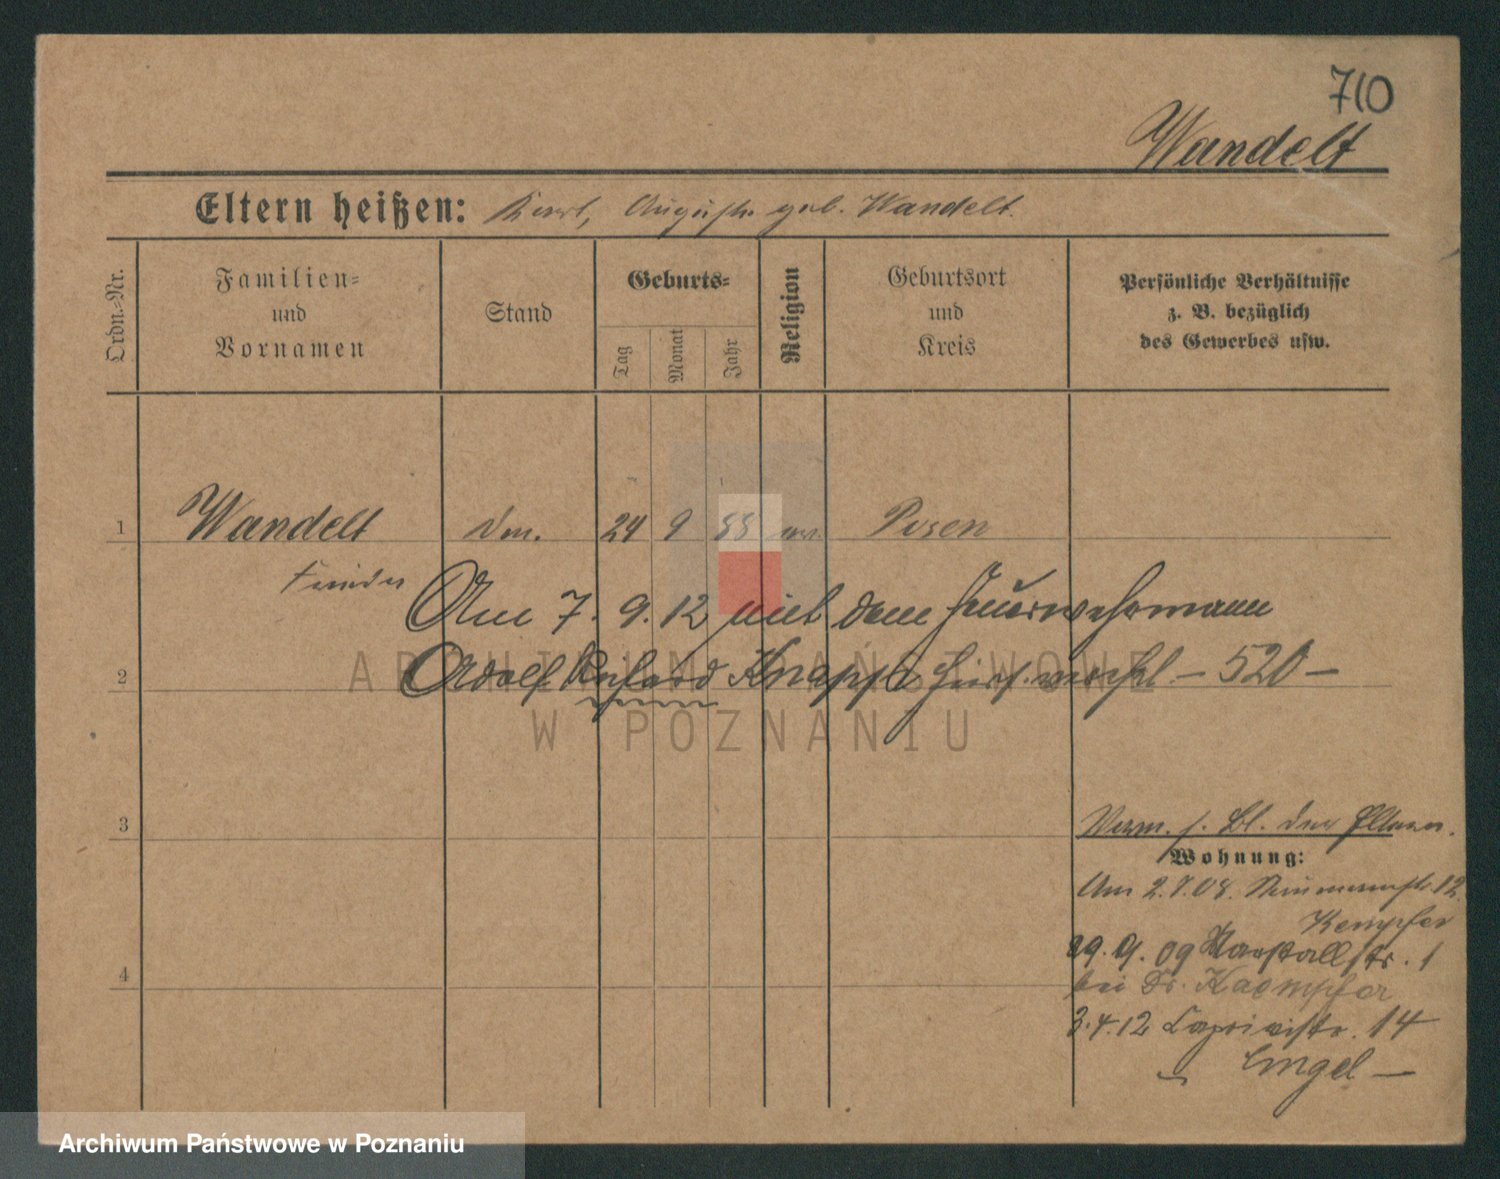 710
Wandelt
Eltern heißen: Karl, Auguste geb. Wandelt.
Ordn.-Nr.
Familien-
und
Vornamen
Stand
Geburts-
Tag
Monat
Jahr
Religion
Geburtsort
und
Kreis
Persönliche Verhältnisse
z. B. bezüglich
des Gewerbes usw.
1 Wandelt 24 9 88 Posen
Am 7. 9. 12 mit dem Feuerwehrmann
2 Adolf Knappe hier verehl. – 520 –
ARCHIWUM PAŃSTWOWE
W POZNANIU
3
Verm. s. Bl. der Eltern.
Wohnung:
Am 2.7.08. 12
Kempfer
29. 9. 09 Marstallstr. 1
4
bei Dr. Kaempfer
3.4.12 Caprivistr. 14
Engel –
Archiwum Państwowe w Poznaniu